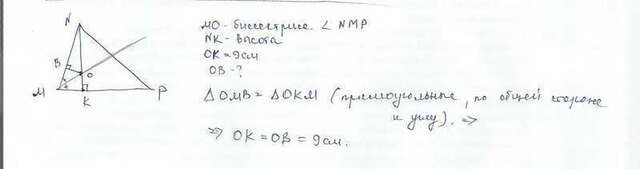 N
B
O
M
K
P
МО - биссектриса ∠ NMP
NK - высота
OK = 9см
OB - ?
△ OMB = △ OKM (прямоугольные, по общей стороне
и углу). ⇒
⇒ OK = OB = 9см.